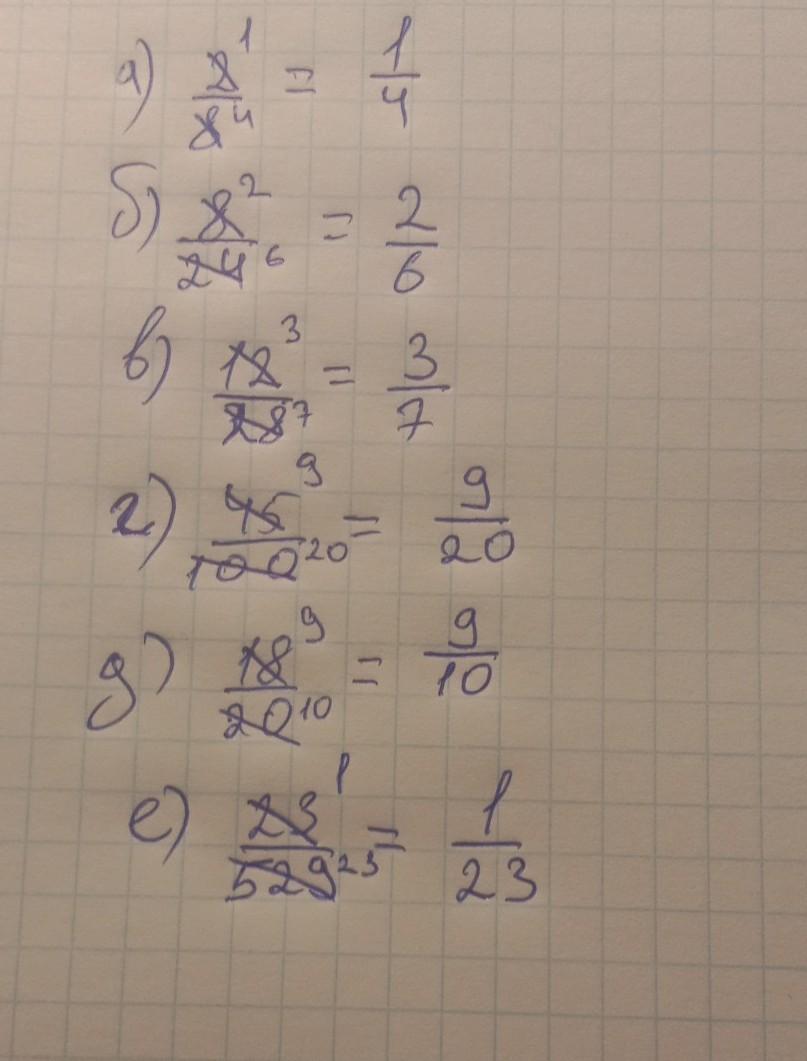 а) 2¹/8⁴ = 1/4
б) 8²/24⁶ = 2/6
в) 12³/28⁷ = 3/7
г) 45⁹/100²⁰ = 9/20
д) 18⁹/20¹⁰ = 9/10
е) 23¹/529²³ = 1/23